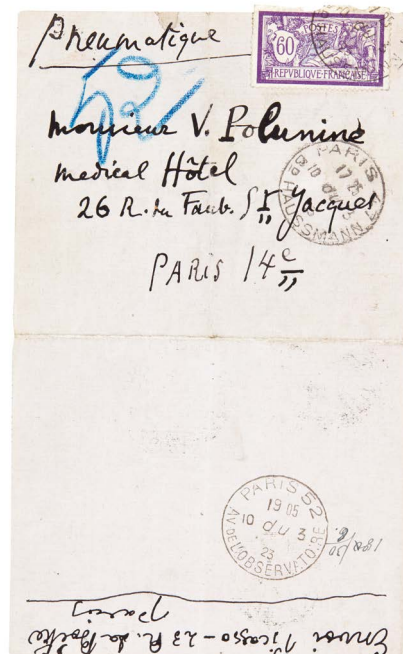 Pneumatique
52
60
POSTES
REPVBLIQVE·FRANÇAISE
Monsieur V. Polunine
medical Hôtel
26 R. du Faub. St Jacques
PARIS 14e
PARIS 47
17 25
10
3
Bd HAUSSMANN
PARIS 52
19 05
10 du 3
23
AV. DE L'OBSERVATOIRE
Envoi Picasso - 23 R. la Boétie
Paris